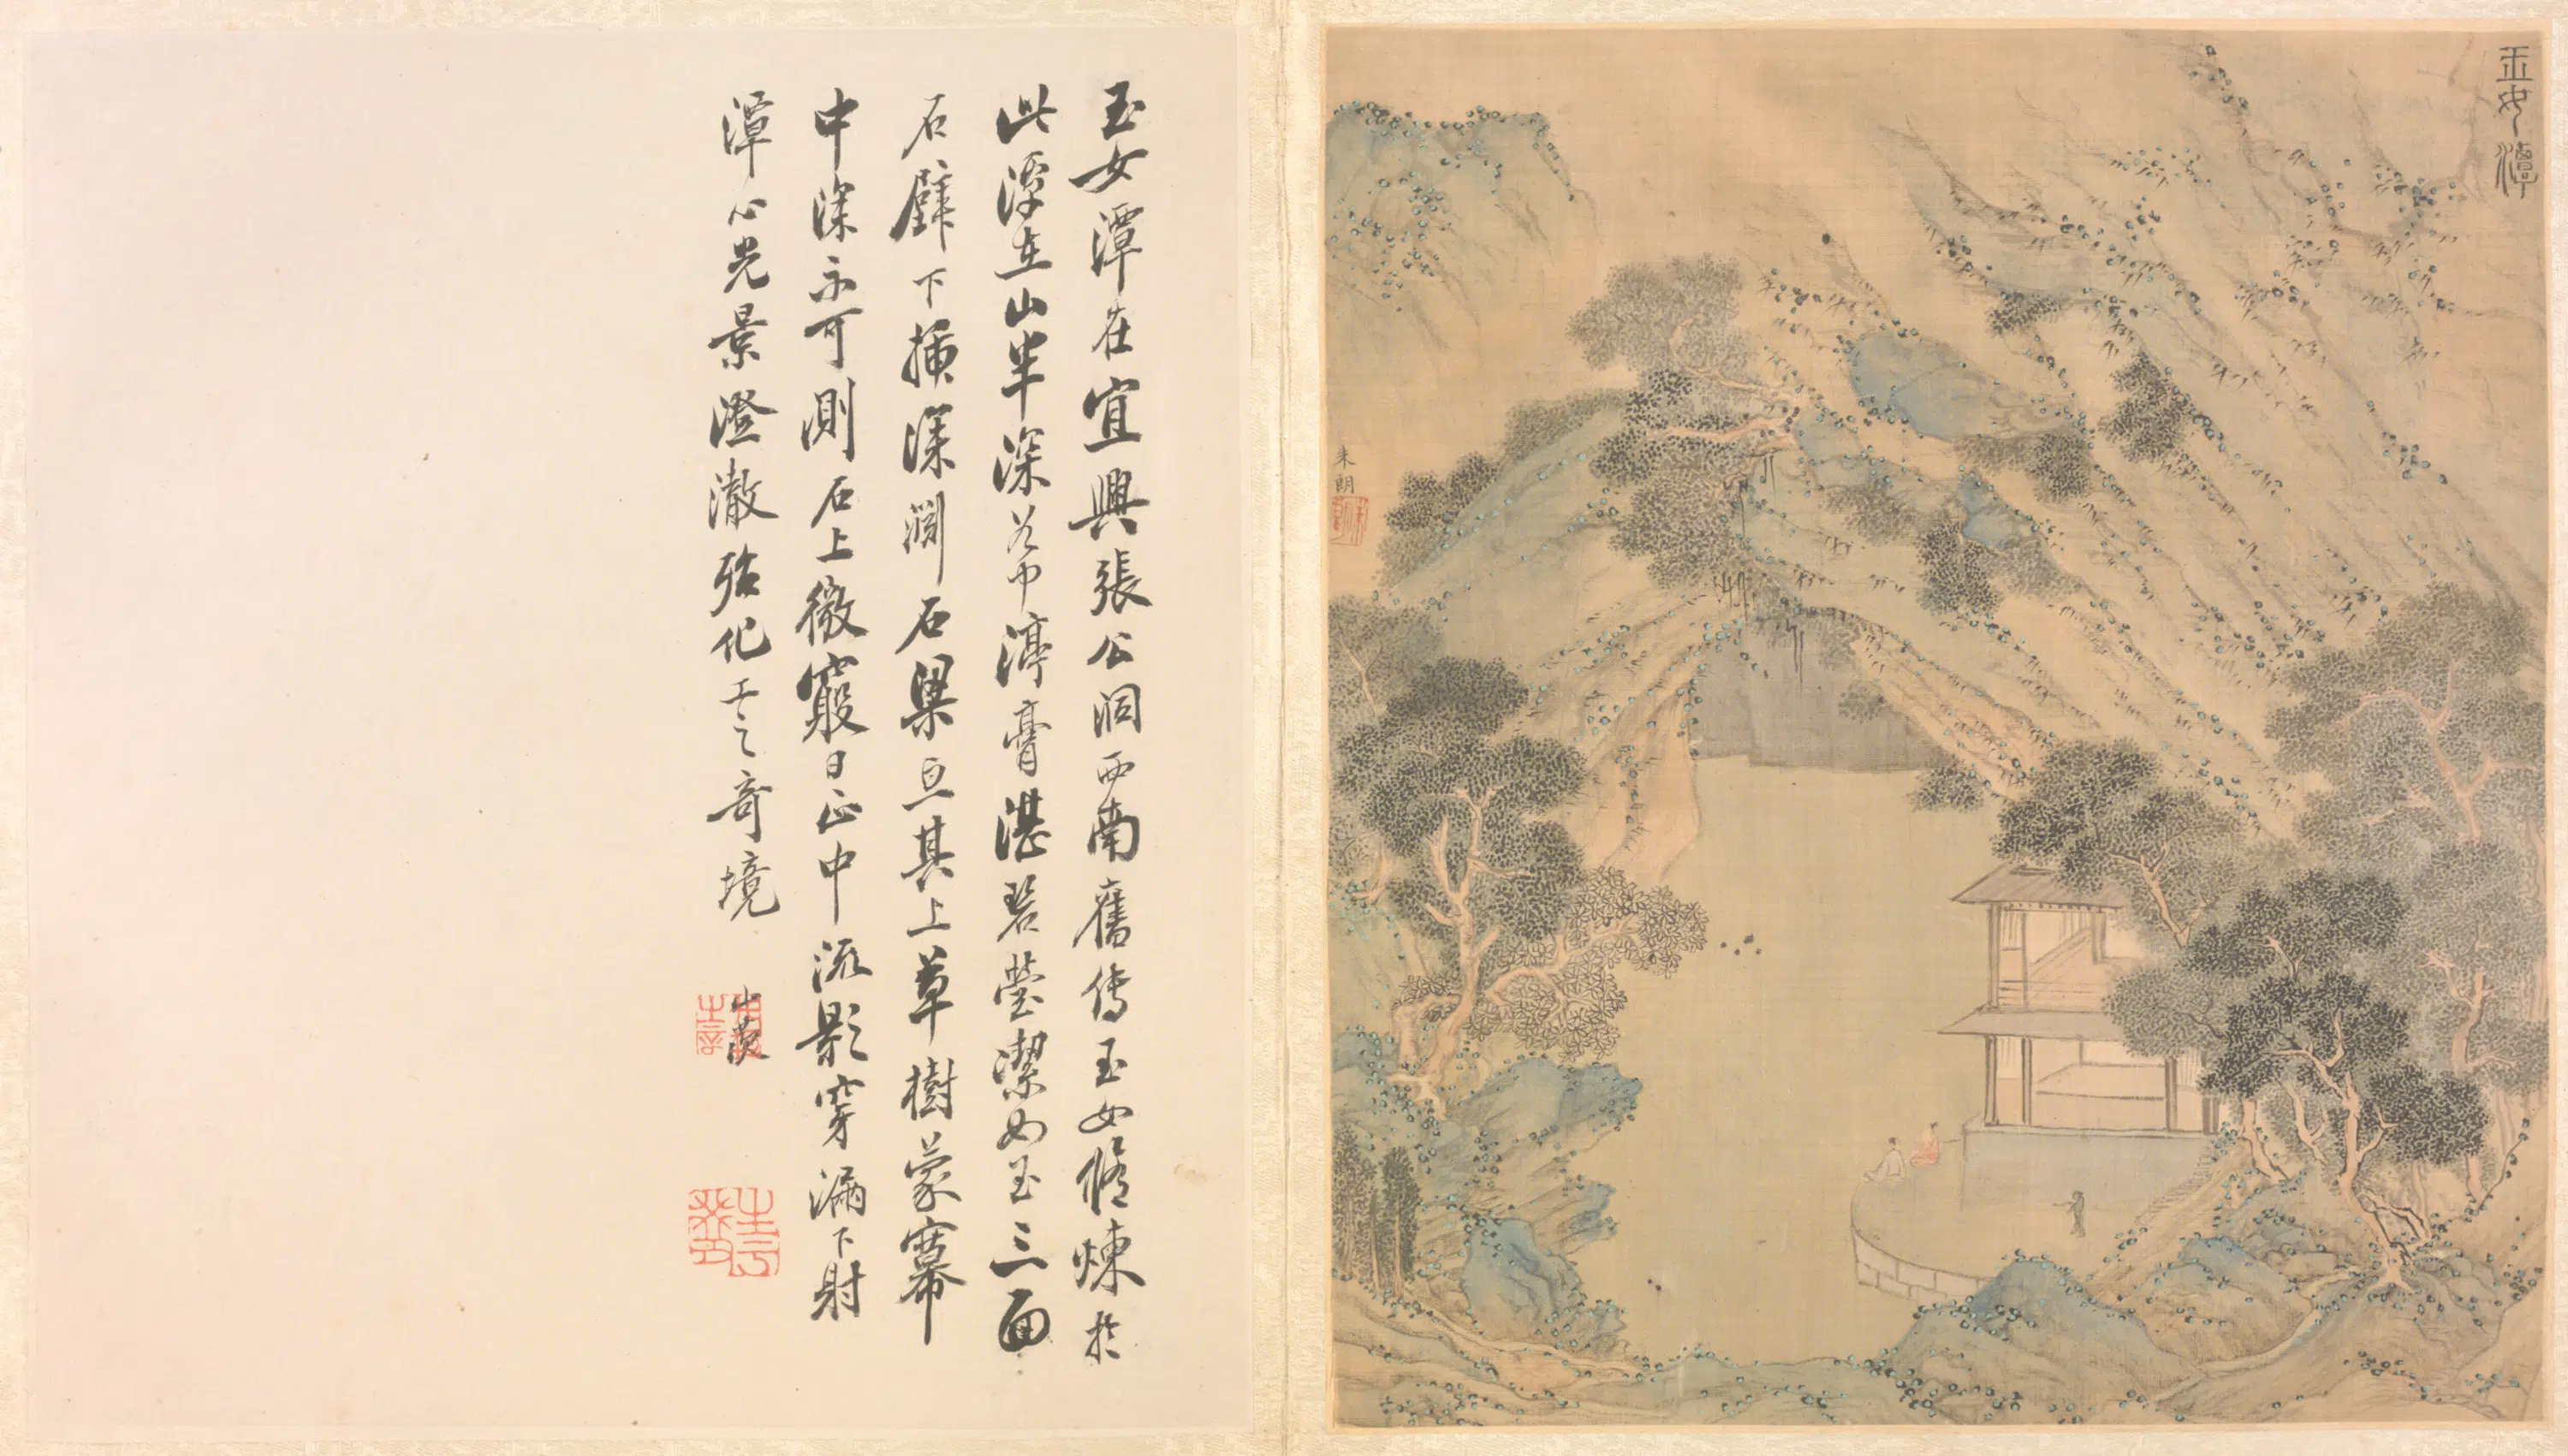 玉女潭
朱朗
玉女潭在宜興張公洞西南舊傳玉女脩煉於
此潭在山半深谷中渟膏湛碧瑩潔如玉三面
石壁下插深淵石梁亘其上草樹蒙羃
中深不可測石上微竅日正中流影穿漏下射
潭心光景澄澈殆化工之奇境
山茨